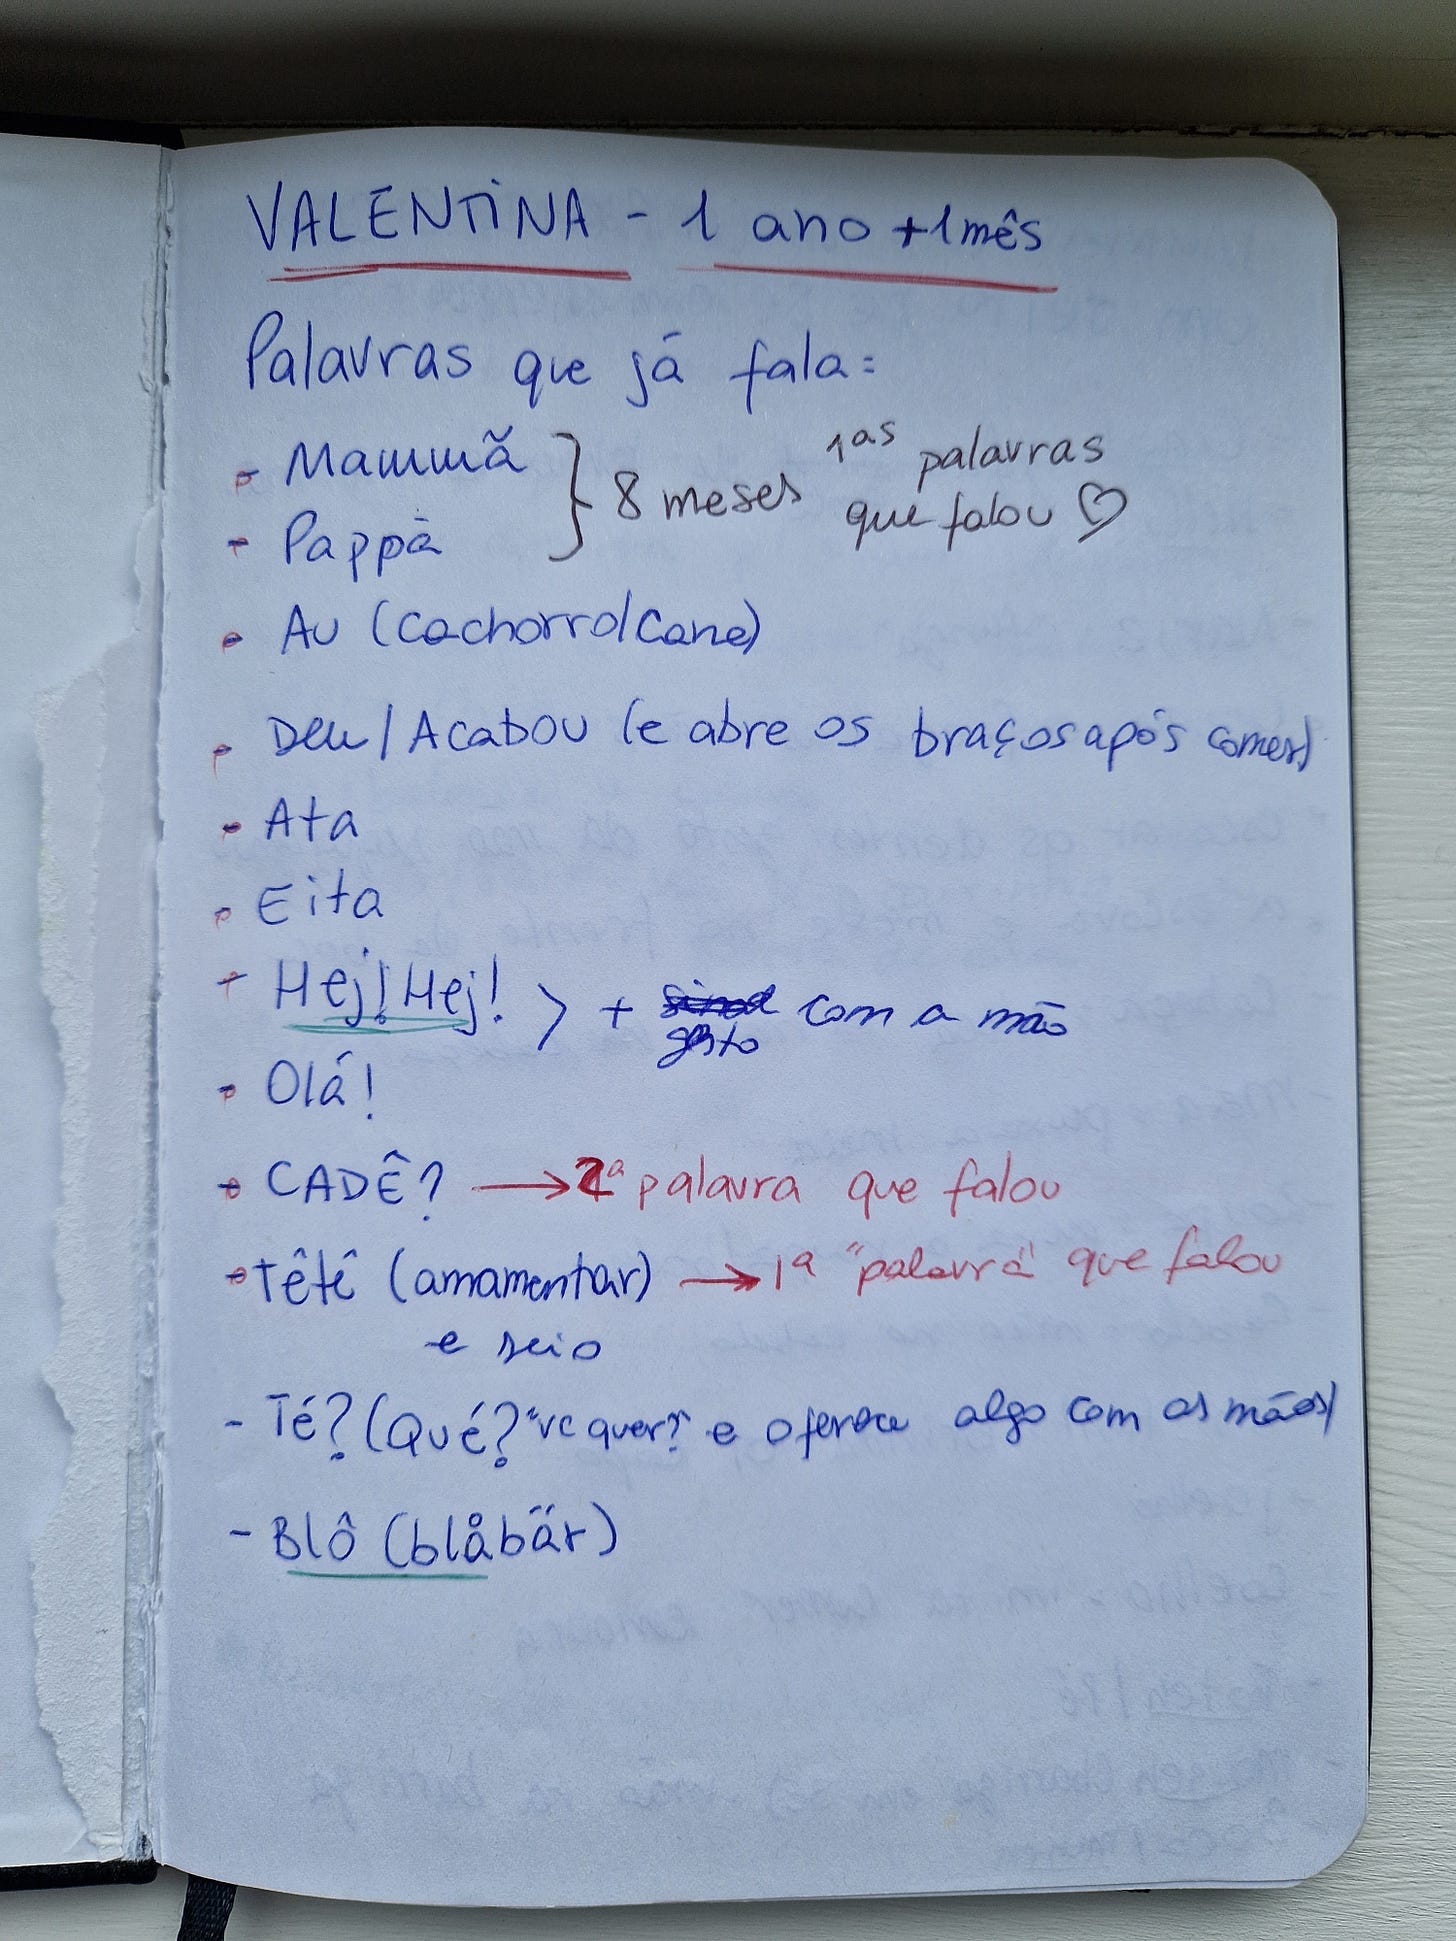 VALENTINA - 1 ano + 1 mês
Palavras que já fala:
- Mammã
- Pappa
} 8 meses 1as palavras
que falou ♡
- Au (Cachorro/Cane)
- Deu / Acabou (e abre os braços após comer)
- Ata
- Eita
- Hej! Hej! > + gesto com a mão
- Olá!
- CADÊ? → 2ª palavra que falou
- Têtê (amamentar) → 1ª "palavra" que falou
e seio
- Té? (Qué? "vc quer?" e oferece algo com as mãos)
- Blô (blåbär)